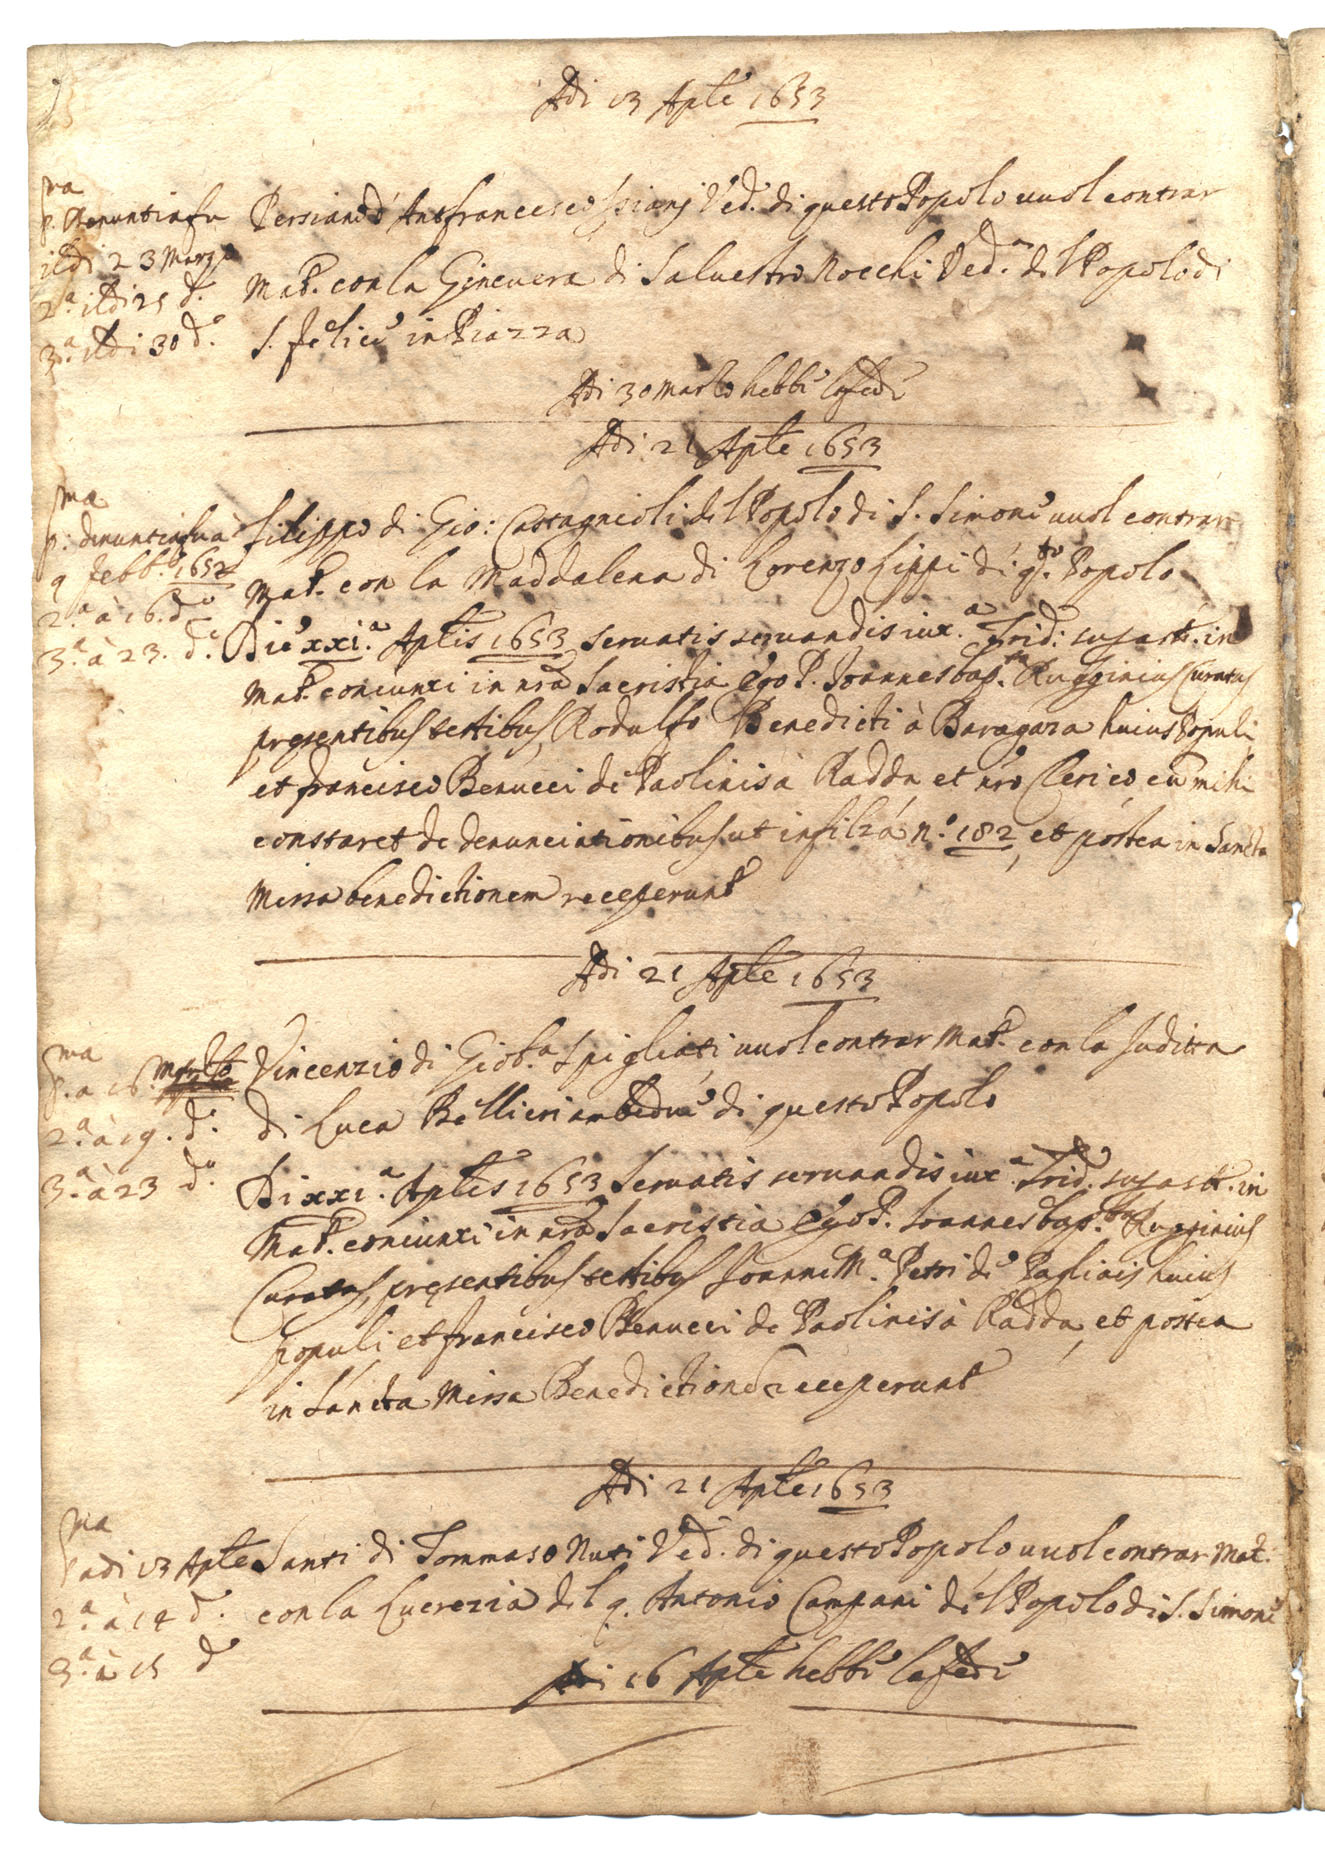 Adi 13 Aple 1653
p.ma Denuntia fu
il di 23 Marzo
2.a il di 25 d.o
3.a il di 30 d.o
Persiano d'Antfrancesco Ved. di questo Popolo vuol contrar
Mat. con la Gineuera di Saluestro Nocchi Ved.a del Popolo di
S. Felice in Piazza
Adi 30 Marzo hebbe la fede
Adi 21 Aple 1653
p.ma denuntia fu à
9 febb.o 1652
2.a à 16. d.o
3.a à 23. d.o
Filippo di Gio: Castagnioli del Popolo di S. Simone vuol contrarre
Mat. con la Maddalena di Lorenzo Lippi di q.to Popolo
Die xxi.a Aplis 1653 seruatis seruandis iux.a Trid: in
Mat. coniunxi in nra Sacristia Ego P. Joannesbap.ta Rugginius Curatus
presentibus testibus Rodulfo Benedicti à Baragaza huius Populi
et francisco Benucci de Paolinis à Radda et nro Clerico cu mihi
constaret de denunciationibus ut in filza n.o 182, et postea in Sancta
Missa benedictionem receperunt
Adi 21 Aple 1653
p.ma a 16.
2.a à 19. d.o
3.a à 23 d.o
Vincenzio di Giob.a Spigliati vuol contrar Mat. con la Juditta
di Luca Bellieri ambedue di questo Popolo
Di xxi.a Aplis 1653 Seruatis seruandis iux.a Trid. in
Mat. coniunxi in nra Sacristia Ego P. Joannesbap.ta Rugginius
Curatus, presentibus testibus Joanne M.a Petri de Pagliais huius
populi et francisco Benucci de Paolinis à Radda, et postea
in Sancta Missa Benedictione receperunt
Adi 21 Aple 1653
p.ma adi 13 Aple
2.a à 14 d.o
3.a à 15 d.o
Santi di Tommaso Nuti Ved. di questo Popolo vuol contrar Mat.
con la Lucrezia del q. Antonio Campani del Popolo di S. Simone
Adi 16 Aple hebbe la fede